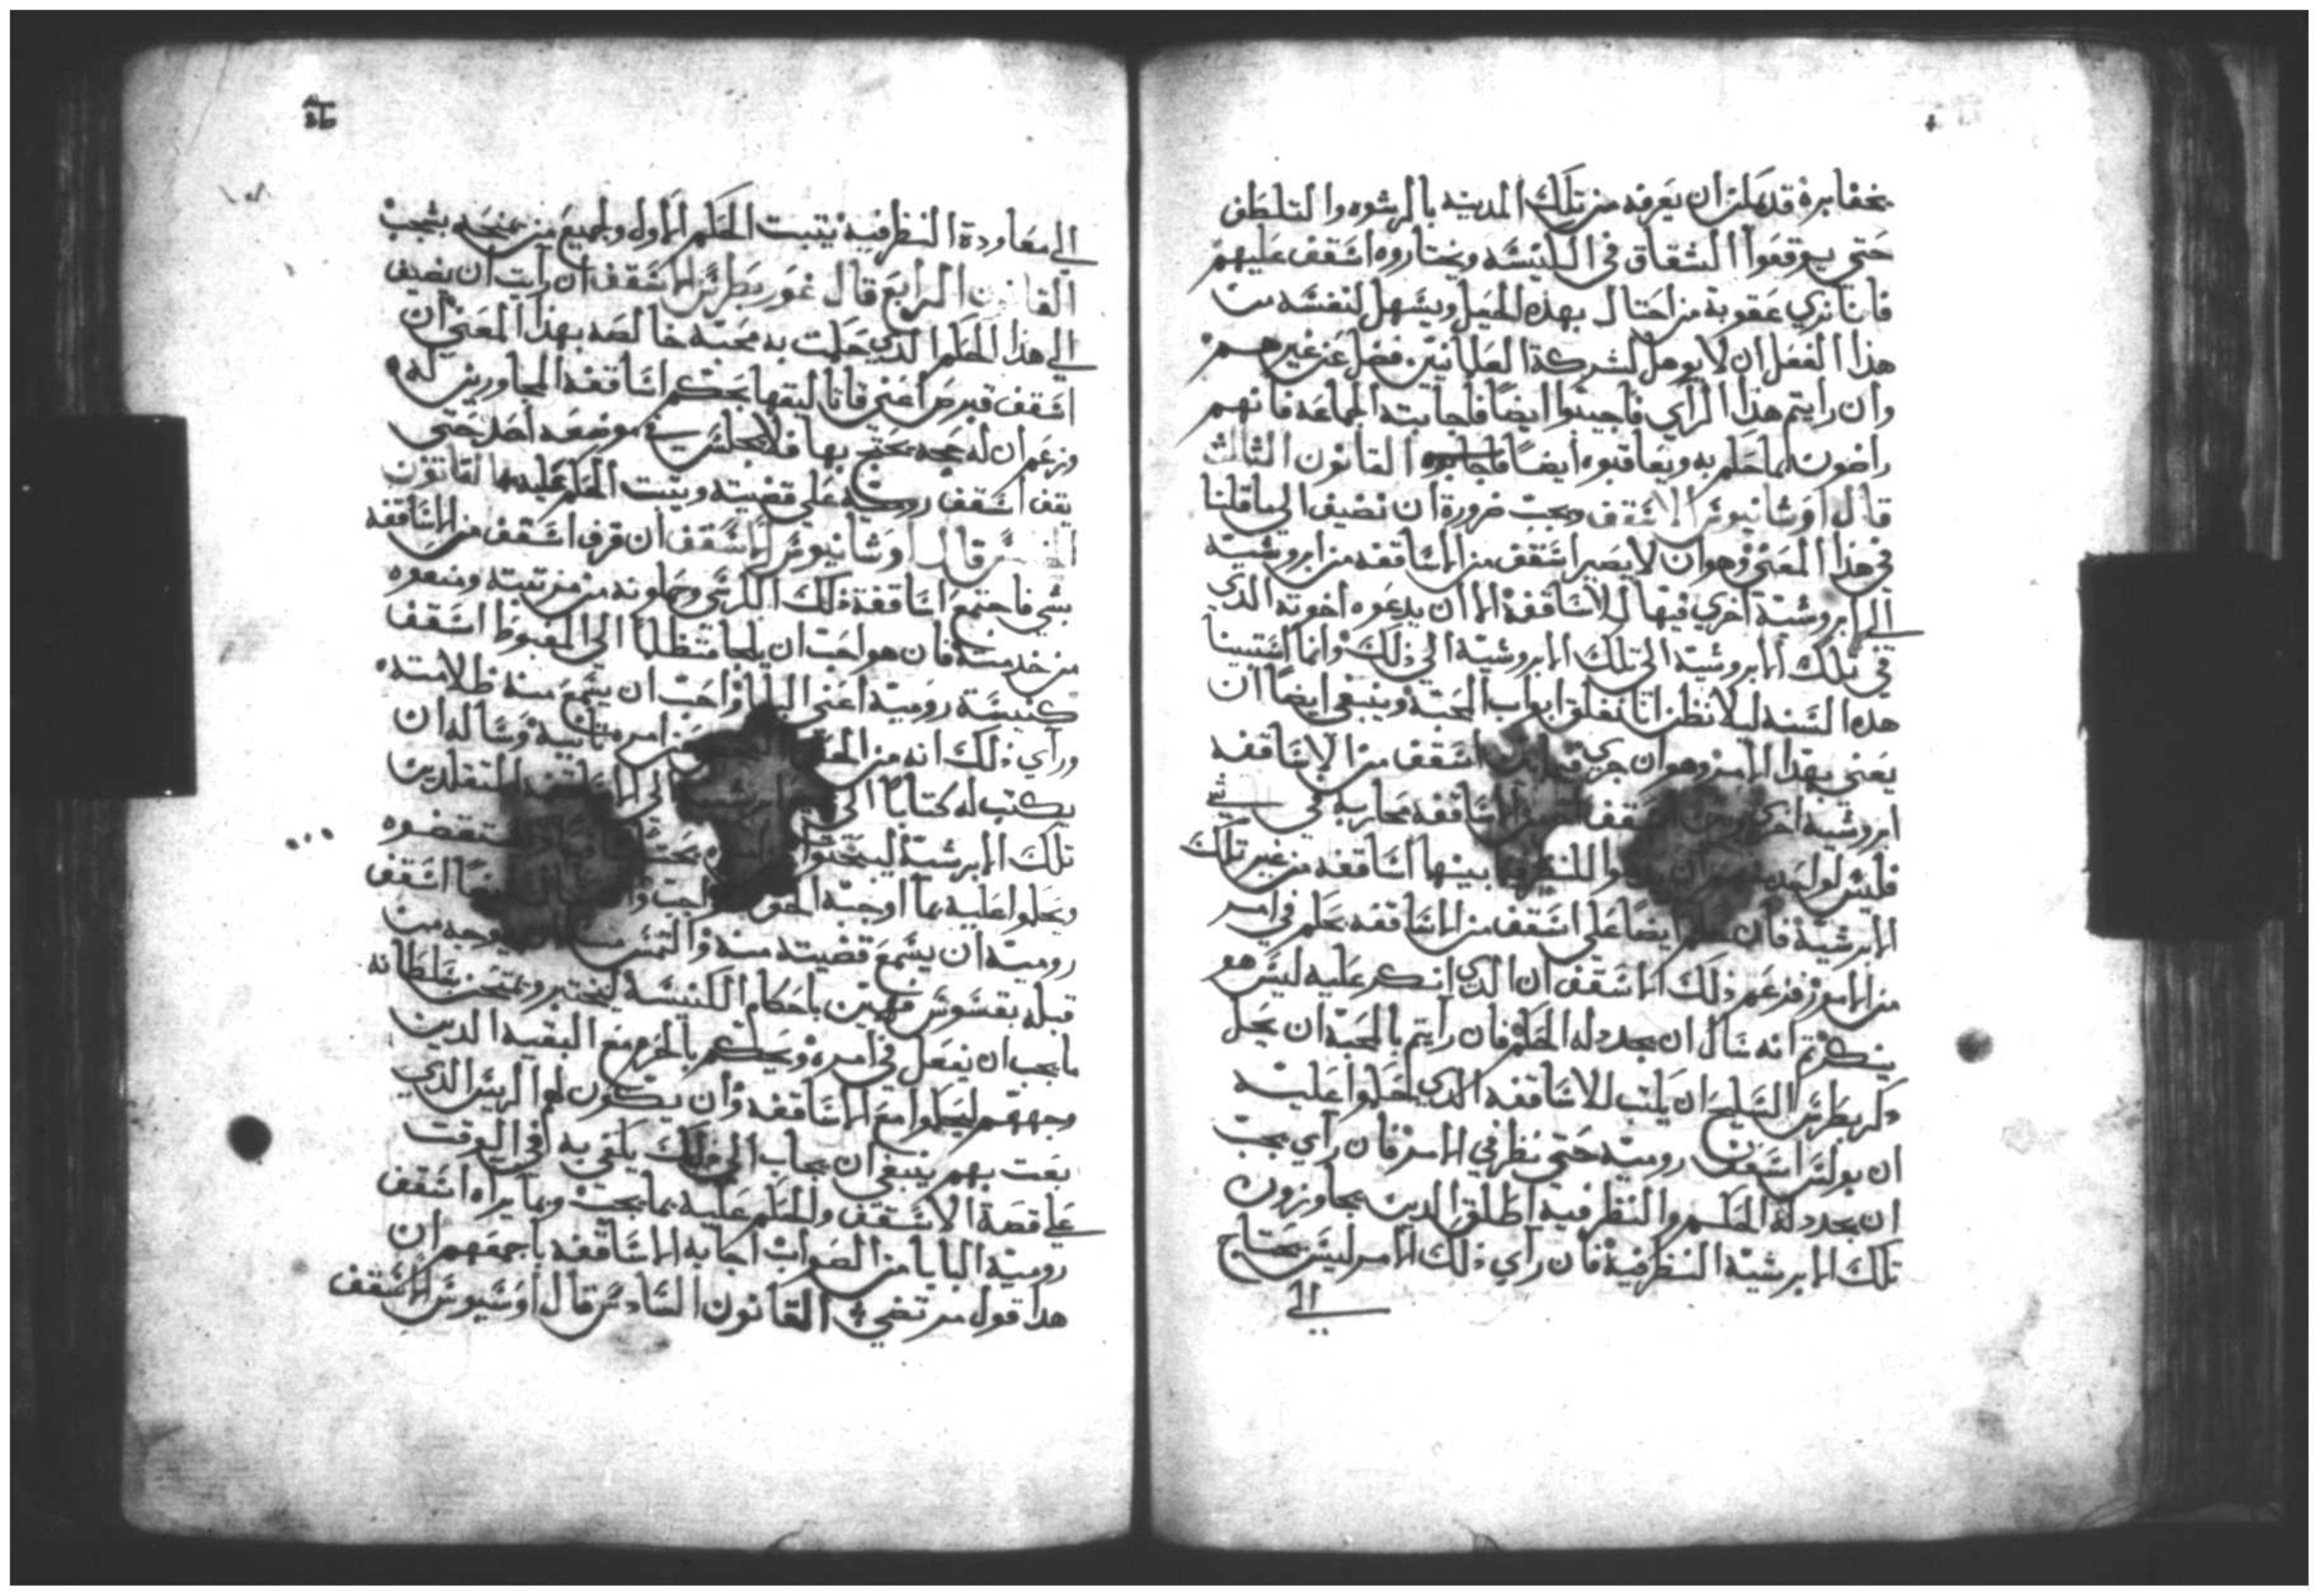 قد يمكن ان يعرفه من تلك المدينه بالرشوه والتلطف
حتى يوقعوا الشقاق في الكنيسه ويختاروه اسقف عليهم
فانا نري عقوبة من احتال بهذه الحيل ويسهل لنفسه
هذا الفعل ان لا يوهل لشركة العلمانيين فضل عن غيرهم
وان رايتم هذا الراي فاجيبوا ايضا فاجابته الجماعه فانهم
راضون لما حكم به ويعاقبوه ايضا القانون الثالث
قال اوسانيوس الاسقف ويجب ضرورة ان نضيف الي ما قلنا
في هذا المعني وهو ان لا يصير اسقف من الاساقفه من ابروشية
الي ابروشية اخري فيها الاساقفة الا ان يدعوه اخوته الذي
في تلك الابروشية الي تلك الابروشية الي ذلك وانما استتنينا
هذه السنه ليلا نظن انا نغلق ابواب المحبة وينبغي ايضا ان
يعني بهذا الامر وهو ان جري اسقف من الاساقفه
ابروشية اخري الاساقفه محاربه في شي
فليس لواحد للنظر بينها اساقفه من غير تلك
الابرشية فان حكم ايضا علي اسقف من الاساقفه بحكم في امر
من الامور فزعم ذلك الاسقف ان الذي انكر عليه ليس هو
بنكر ثم انه سال ان يجدد له الحكم فان رايتم بالمحبة ان يجل
ذكر بطرس السليح ان يكتب للاساقفه الذي حكموا عليه
ان بولس اسقف رومية حتي ينظر في الامر فان راي يجب
ان يجدد له الحكم والنظر فيه اطلق الدين يجاورون
تلك الابرشية النظر فيه فان راي ذلك الامر ليس يحتاج
الي
الي معاودة النظر فيه يتبت الحكم الاول وجميع من يمنحه بشجب
القانون الرابع قال غوريطرس الاسقف ان رايت ان نضيف
الي هذا الحكم الذي حكمت به محبة خالصه بهذا المعني ان
اسقف قبرص اعني قاناليقها بحكم اساقفة المجاورين له
وزعم ان له حجه يحتج بها فلا يجلس في موضعه احد حتي
يقف اسقف رومية علي قضيته ويتبت الحكم عليه القانون
الخامس قال اوسانيوس الاسقف ان قرف اسقف من الاساقفه
بشي فاجتمع اساقفة ذلك الكرسي وحطونه من مرتبته ومنعوه
من خدمته فان هو احب ان يلجا متظلما الي المغبوط اسقف
كنيسة رومية اعني البابا واحب ان يسمع منه ظلامته
وراي ذلك انه من الحق امره تانية وساله ان
يكتب له كتابا الي الي الاساقفه المتقلدين
تلك الابرشية ليبحتوا ويستقضوه
ويحكموا عليه بما اوجبه الحق ايضا اسقف
رومية ان يسمع قضيته منه والتمس منه ان يوجه من
قبله بقسوس فهمين باحكام الكنيسة ليختبر ويمتحن بسلطانه
ما يجب ان يفعل في امره ويحكم بالحرم مع البقيه الدين
وجههم ليحكموا مع الاساقفه وان يكون لهم الريس الذي
بعت بهم ينبغي ان يجاب الي ذلك يكفي به في الوقت
علي قصة الاسقف والحكم عليه بما يجب وبما يراه اسقف
رومية البابا من الصواب اجابه الاساقفه باجمعهم ان
هدا قول مرتضي القانون السادس قال اوسيوس الاسقف